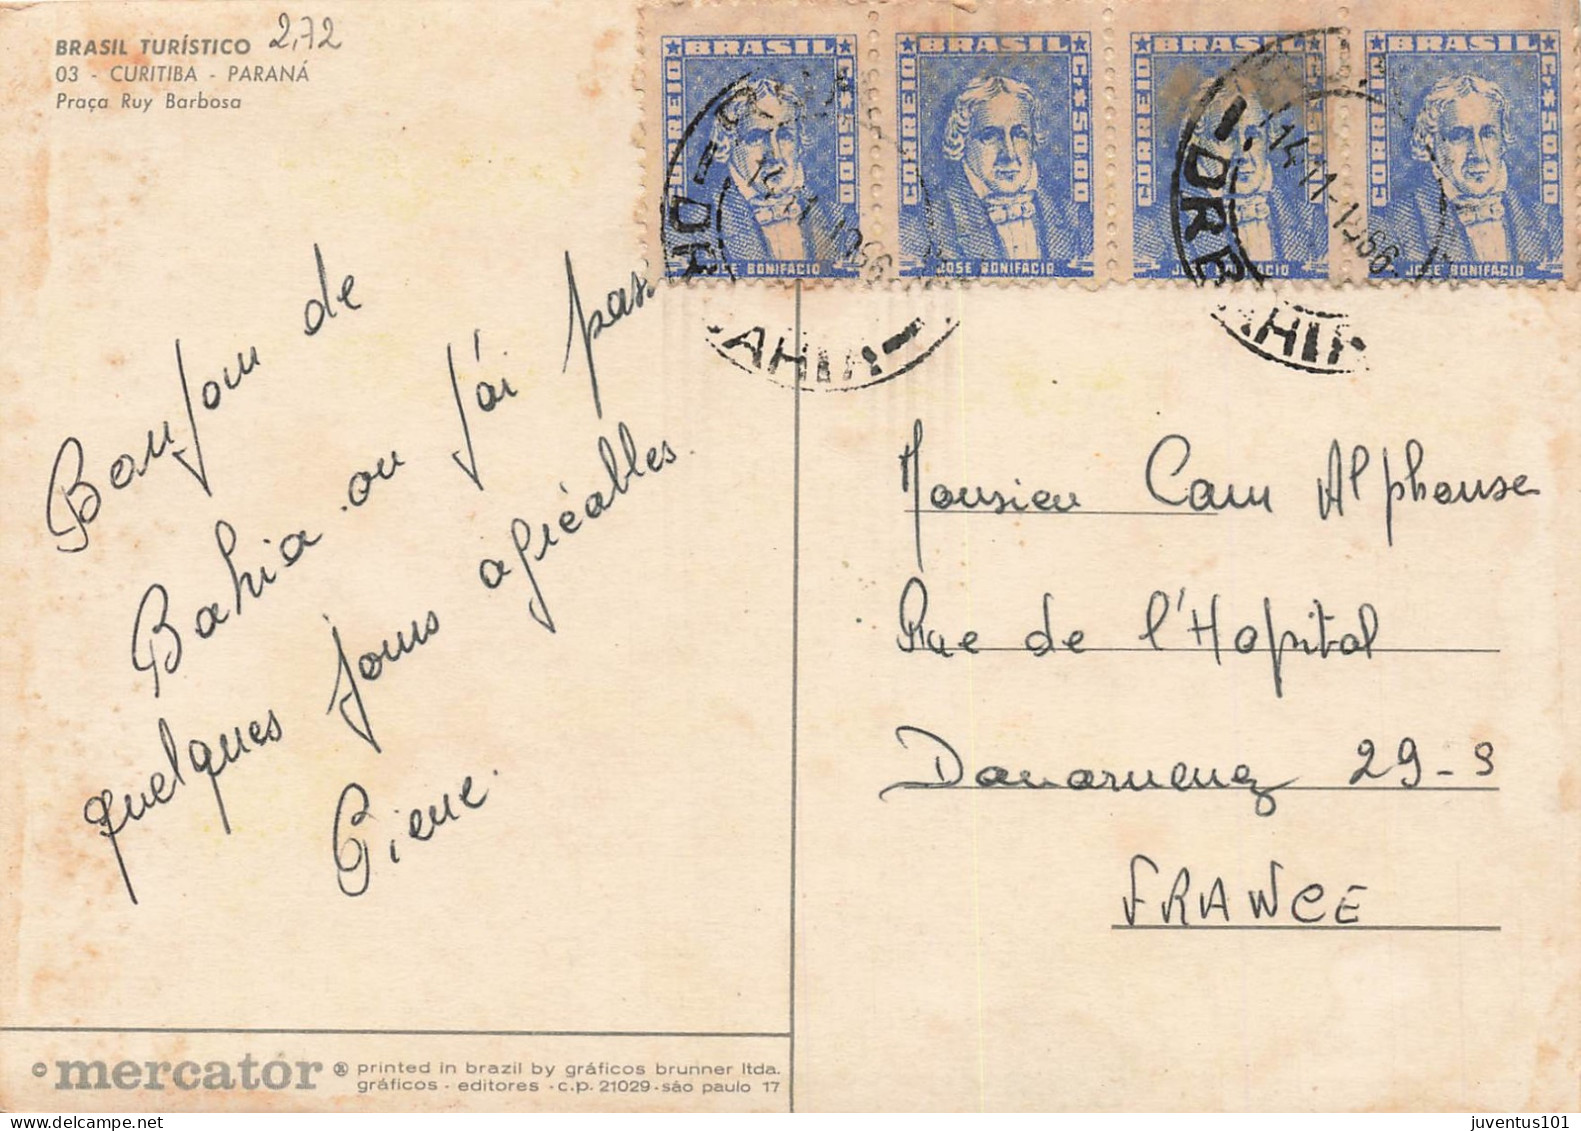 BRASIL TURÍSTICO 2,72
03 - CURITIBA - PARANÁ
Praça Ruy Barbosa
BRASIL BRASIL BRASIL BRASIL
CORREIO CORREIO CORREIO CORREIO
Cr$ 50,00 Cr$ 50,00 Cr$ 50,00 Cr$ 50,00
JOSE BONIFACIO JOSE BONIFACIO JOSE BONIFACIO JOSE BONIFACIO
14 11 1966
14-11-1966
BAHIA
BAHIA
Bonjour de
Bahia ou j'ai passé
quelques jours agréables.
Pierre.
Monsieur Alphonse
Rue de l'Hopital
Douarnenez 29-S
FRANCE
© mercator ® printed in brazil by gráficos brunner ltda.
gráficos - editores - c.p. 21029 - são paulo 17
juventus101